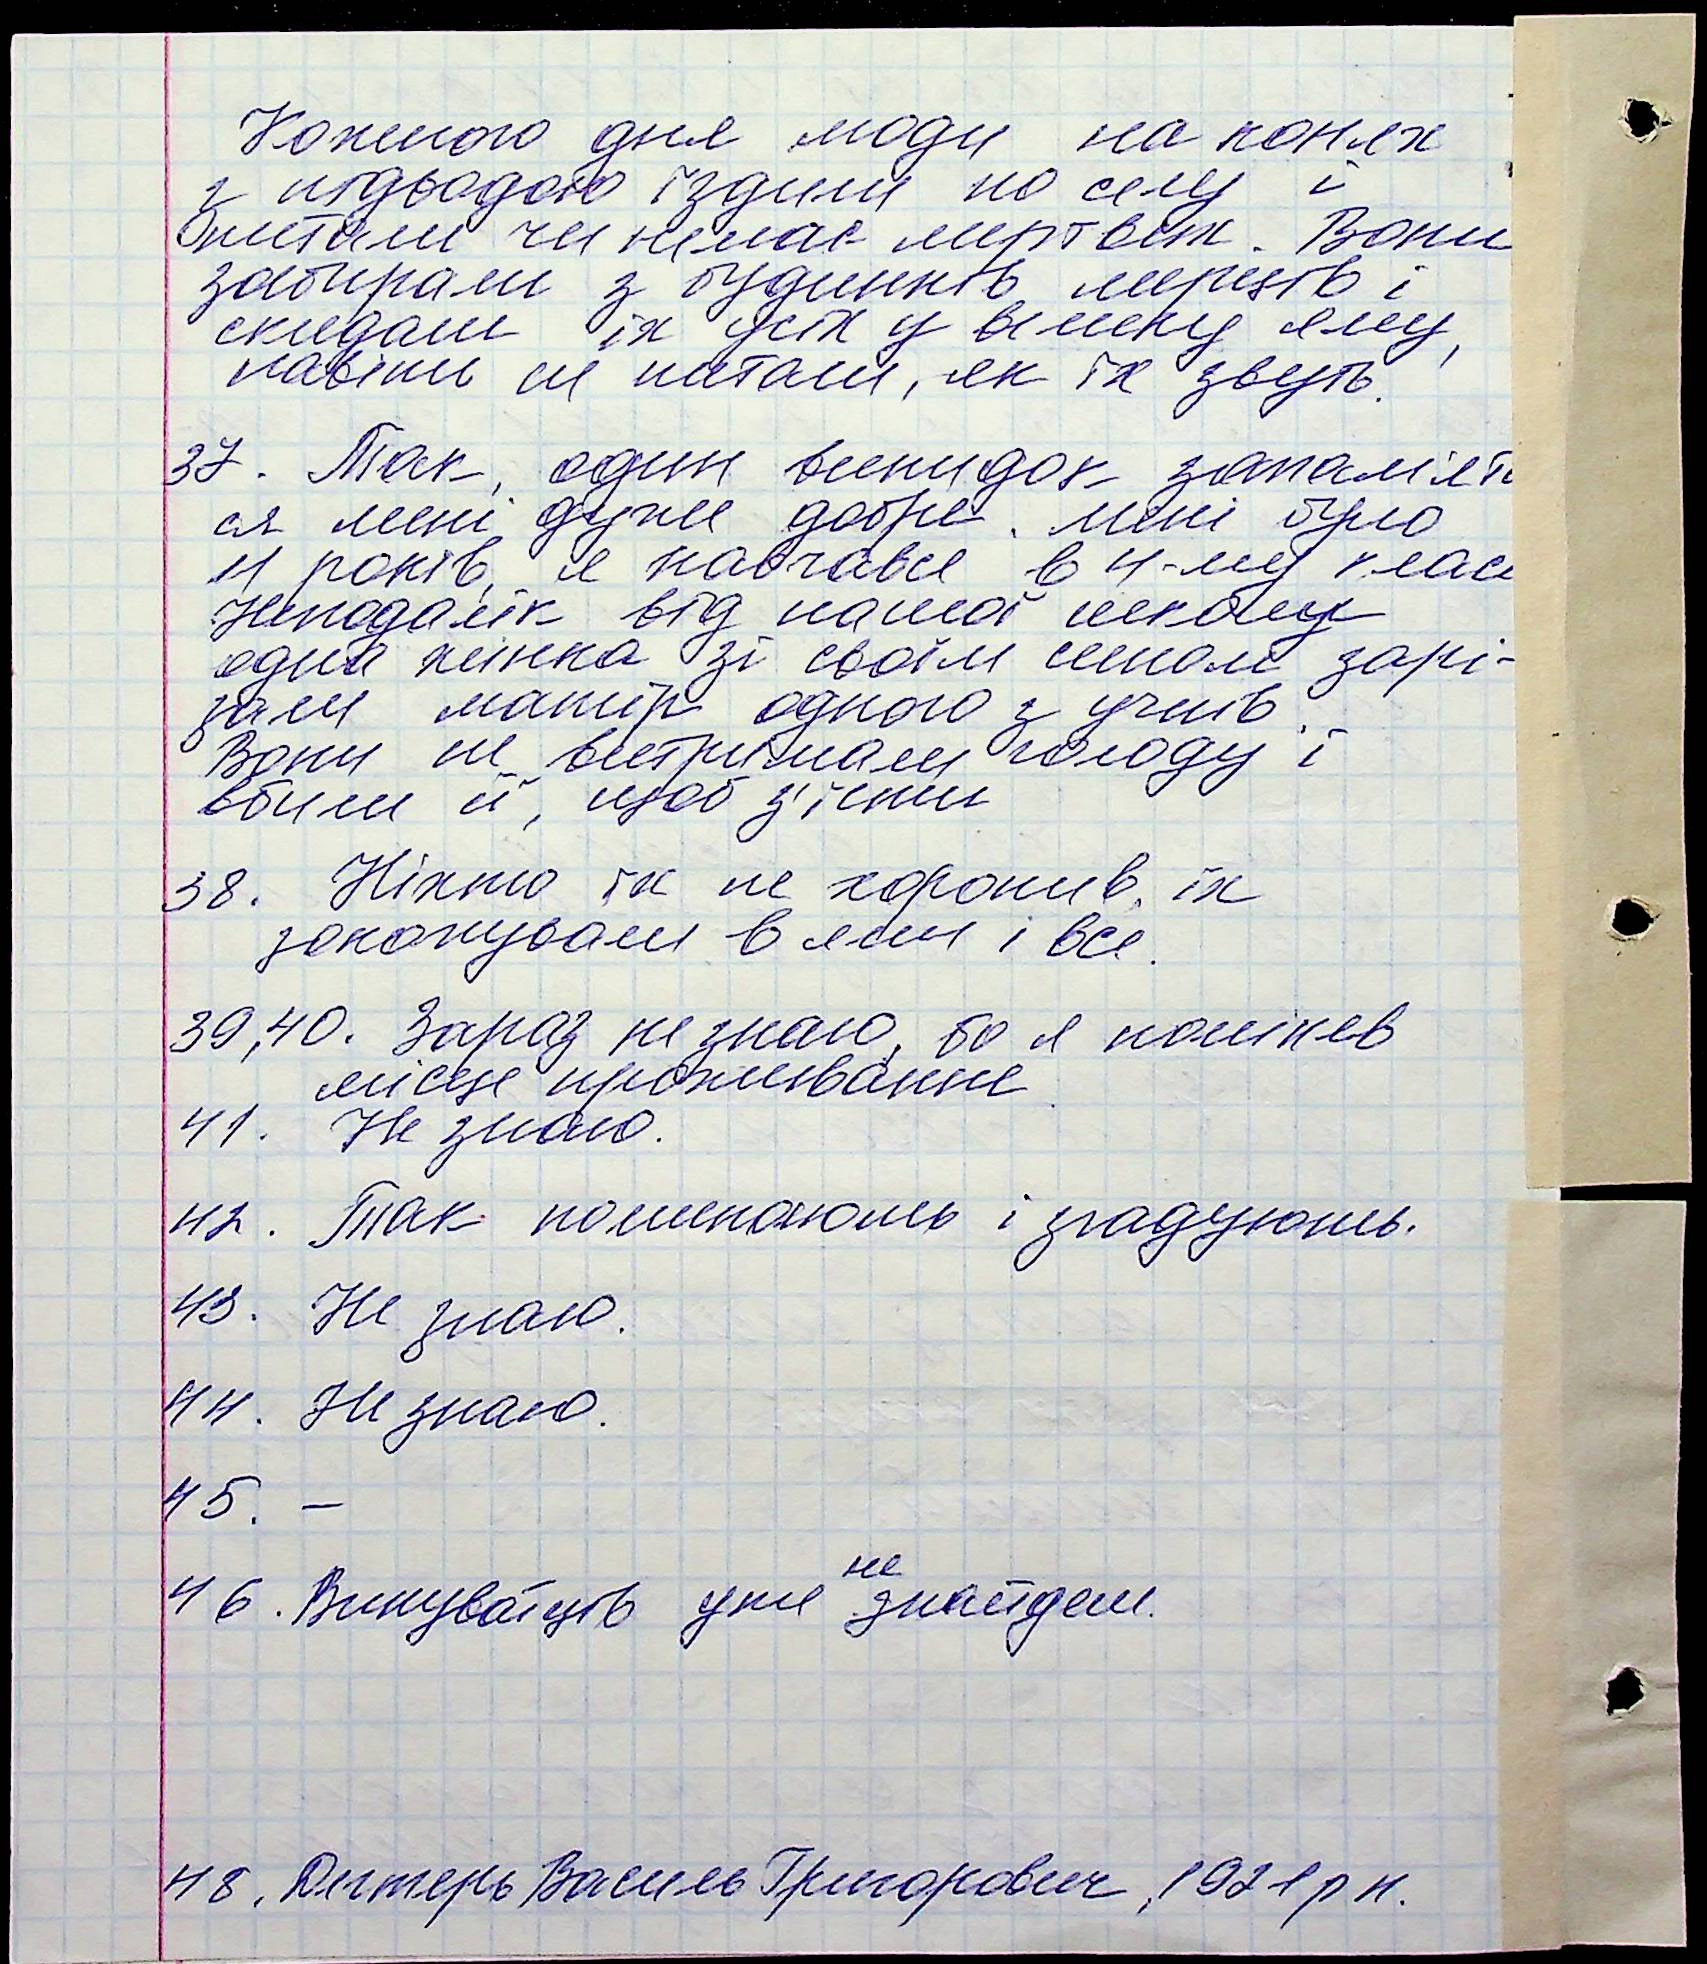 Кожного дня люди на конях
з підводою їздили по селу і
питали чи немає мертвих. Вони
забирали з будинків мерців і
скидали їх усіх у велику яму,
навіть не питали, як їх звуть.
37. Так, один випидок запам'ята
ся мені дуже добре. Мені було
11 років, я навчався в 4-му класі
Неподалік від нашої школи
одна жінка зі своїм сином зарі-
зали матір одного з учнів.
Вони не витримали голоду і
вбили її, щоб з'їсти
38. Ніхто їх не хоронив, їх
закопували в ями і все.
39,40. Зараз не знаю, бо я поміняв
місце проживання
41. Не знаю.
42. Так поминають і згадують.
43. Не знаю.
44. Не знаю.
45. –
46. Винуватців уже не знайдеш.
48. Василь Григорович, 1921 р н.